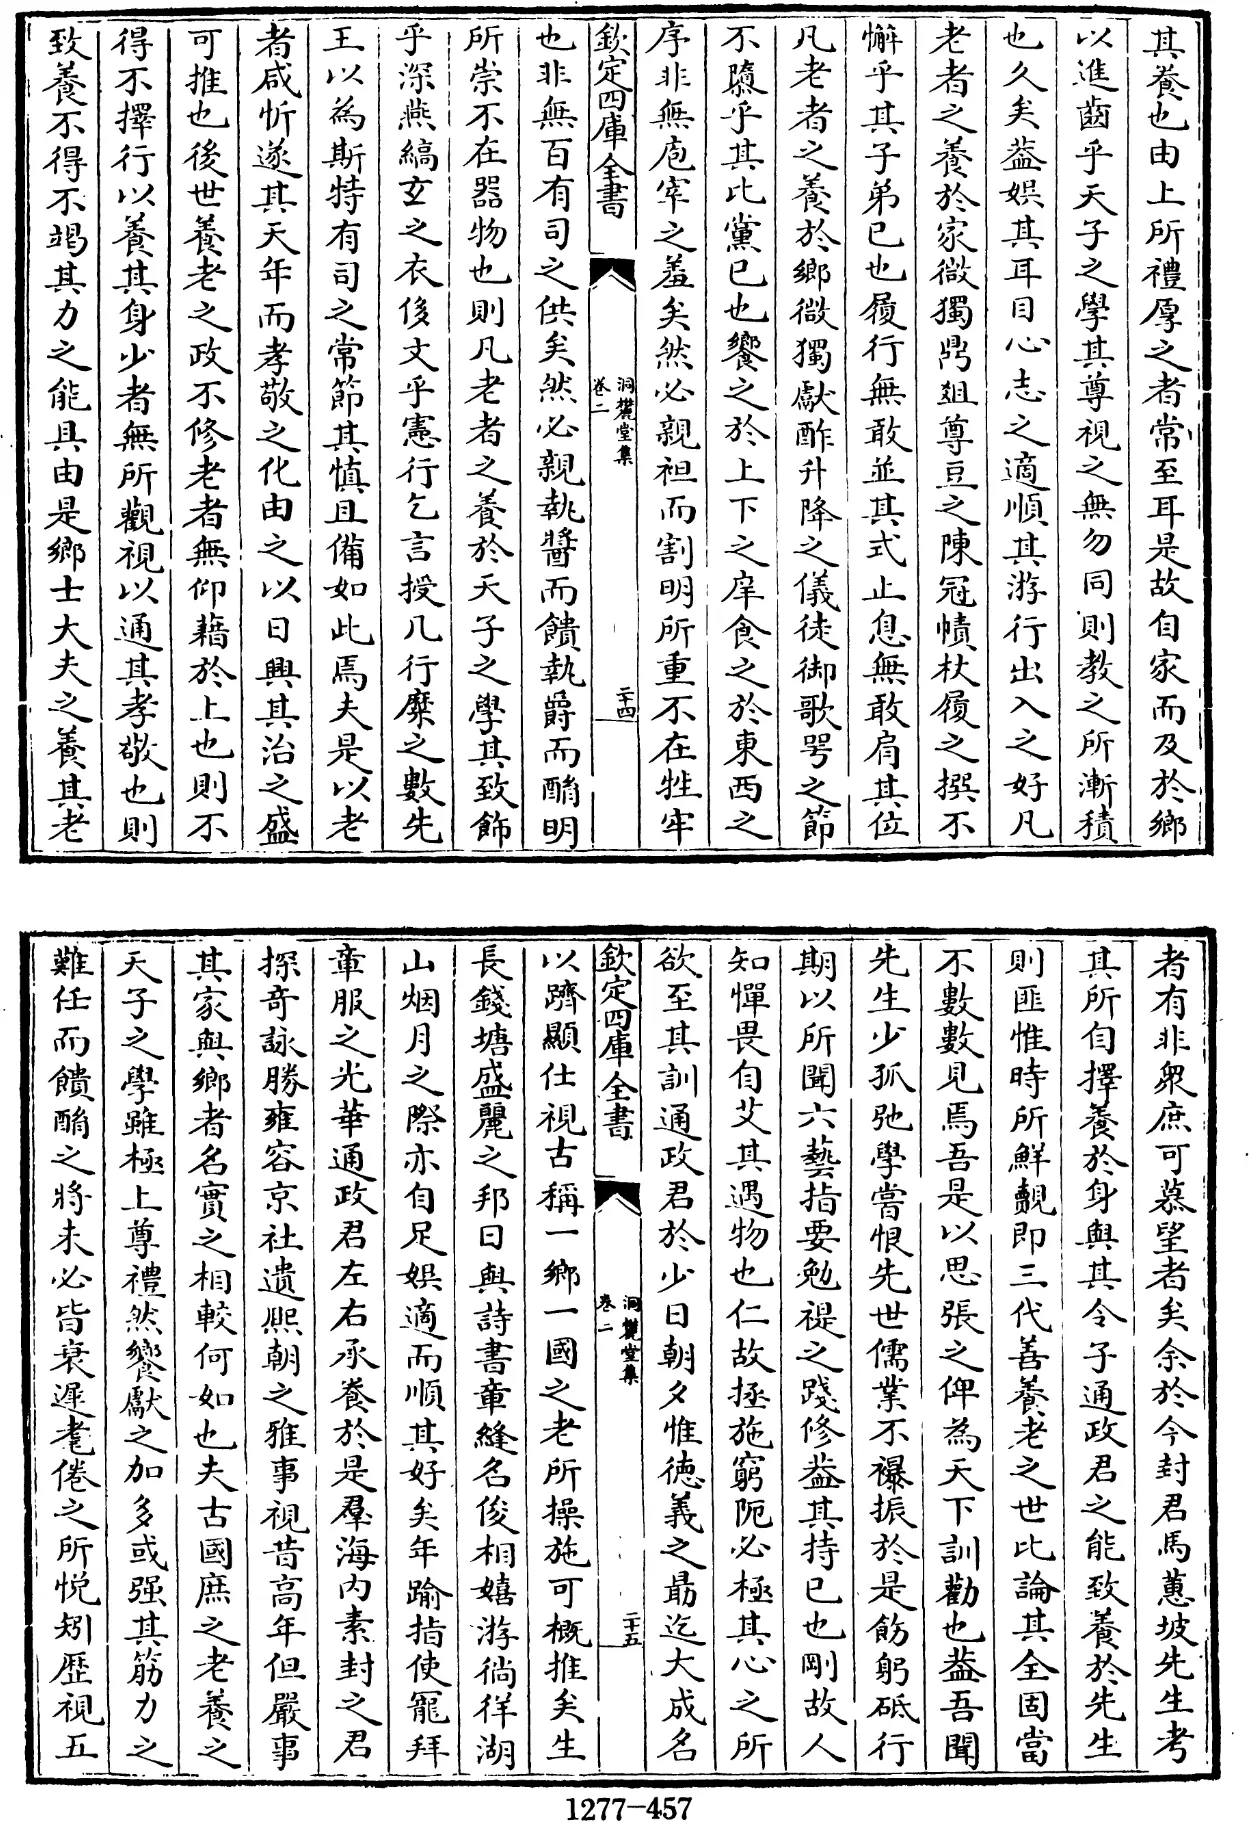 其養也由上所禮厚之者常至耳是故自家而及於鄉
以進齒乎天子之學其尊視之無勿同則教之所漸積
也久矣葢娛其耳目心志之適順其游行出入之好凡
老者之養於家微獨鼎爼尊豆之陳冠幘杖履之撰不
懈乎其子弟已也履行無敢並其式止息無敢肩其位
凡老者之養於鄉微獨獻酢升降之儀徒御歌咢之節
不隳乎其比黨已也饗之於上下之庠食之於東西之
序非無庖宰之羞矣然必親袒而割明所重不在牲牢
欽定四庫全書
洞麓堂集
卷二
二十四
也非無百有司之供矣然必親執醬而饋執爵而酳明
所崇不在器物也則凡老者之養於天子之學其致飾
乎深燕縞玄之衣侈文乎憲行乞言授几行糜之數先
王以為斯特有司之常節其慎且備如此焉夫是以老
者咸忻遂其天年而孝敬之化由之以日興其治之盛
可推也後世養老之政不修老者無仰藉於上也則不
得不擇行以養其身少者無所觀視以通其孝敬也則
致養不得不竭其力之能具由是鄉士大夫之養其老
者有非衆庶可慕望者矣余於今封君馬蕙坡先生考
其所自擇養於身與其令子通政君之能致養於先生
則匪惟時所鮮覿即三代善養老之世比論其全固當
不數數見焉吾是以思張之俾為天下訓勸也葢吾聞
先生少孤弛學嘗恨先世儒業不襮振於是飭躬砥行
期以所聞六藝指要勉禔之踐修葢其持已也剛故人
知憚畏自艾其遇物也仁故拯施窮阨必極其心之所
欲至其訓通政君於少日朝夕惟德義之勗迄大成名
欽定四庫全書
洞麓堂集
卷二
二十五
以躋顯仕視古稱一鄉一國之老所操施可概推矣生
長錢塘盛麗之邦日與詩書章縫名俊相嬉游徜徉湖
山烟月之際亦自足娛適而順其好矣年踰指使寵拜
章服之光華通政君左右承養於是羣海內素封之君
探奇詠勝雍容京社遺熙朝之雅事視昔高年但嚴事
其家與鄉者名實之相較何如也夫古國庶之老養之
天子之學雖極上尊禮然饗獻之加多或强其筋力之
難任而饋酳之將未必皆衰遲耄倦之所悅矧歷視五
1277-457